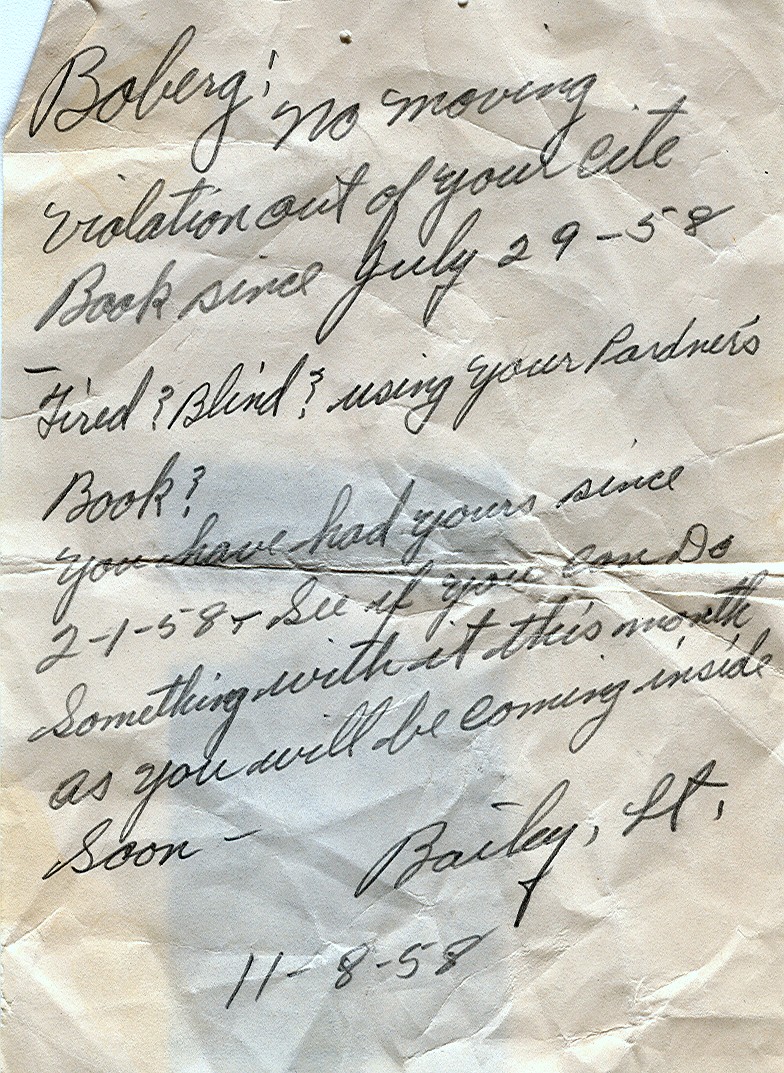 Boberg! No moving
violation out of your cite
Book since July 29-58
Tired? Blind? using your Pardner's
Book?
You have had yours since
2-1-58- See if you can Do
Something with it this month
as you will be coming inside
soon -
Bailey, Lt,
11-8-58